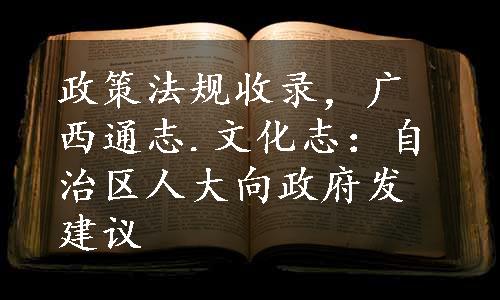 政策法规收录，广
西通志.文化志：自
治区人大向政府发
建议